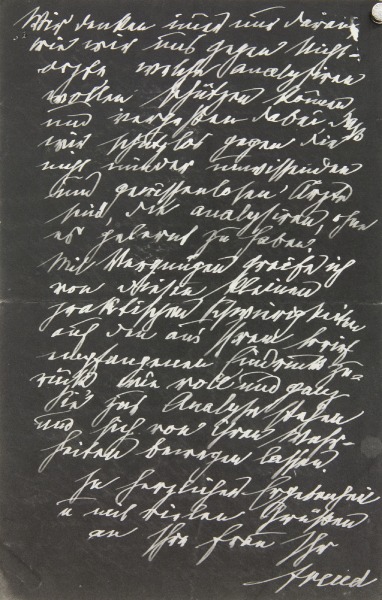 Wir denken immer nur daran
wie wir uns gegen Nicht-
ärzte welche analysiren
wollen schützen können
und vergessen dabei daß
wir schutzlos gegen die
nicht minder unwissenden
und gewissenlosen Ärzte
sind, die analysiren, ohne
es gelernt zu haben.
Mit Vergnügen greife ich
von diesen kleinen
praktischen Schwierigkeiten
auf den aus Ihrem Brief
empfangenen Eindruck zu-
rück wie voll und ganz
Sie zur Analyse stehen
und sich von ihren Wahr-
heiten bewegen lassen
In herzlicher Ergebenheit
u mit vielen Grüßen
an Ihre Frau Ihr
Freud